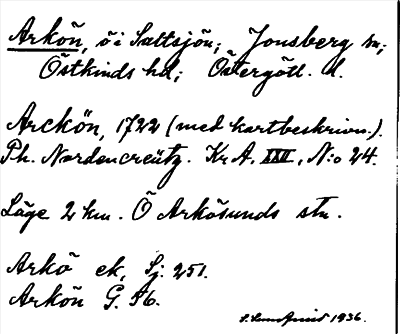 Arkön, ö i Saltsjön; Jonsberg sn;
Östkinds hd; Östergötl. l.
Arckön, 1722 (med kartbeskrivn.).
Ph. Nordencreütz. Kr A. XXV, N:o 24.
Läge 2 km. Ö Arkösunds stn.
Arkö ek, Sj. 251.
Arkön G. 56.
1936.